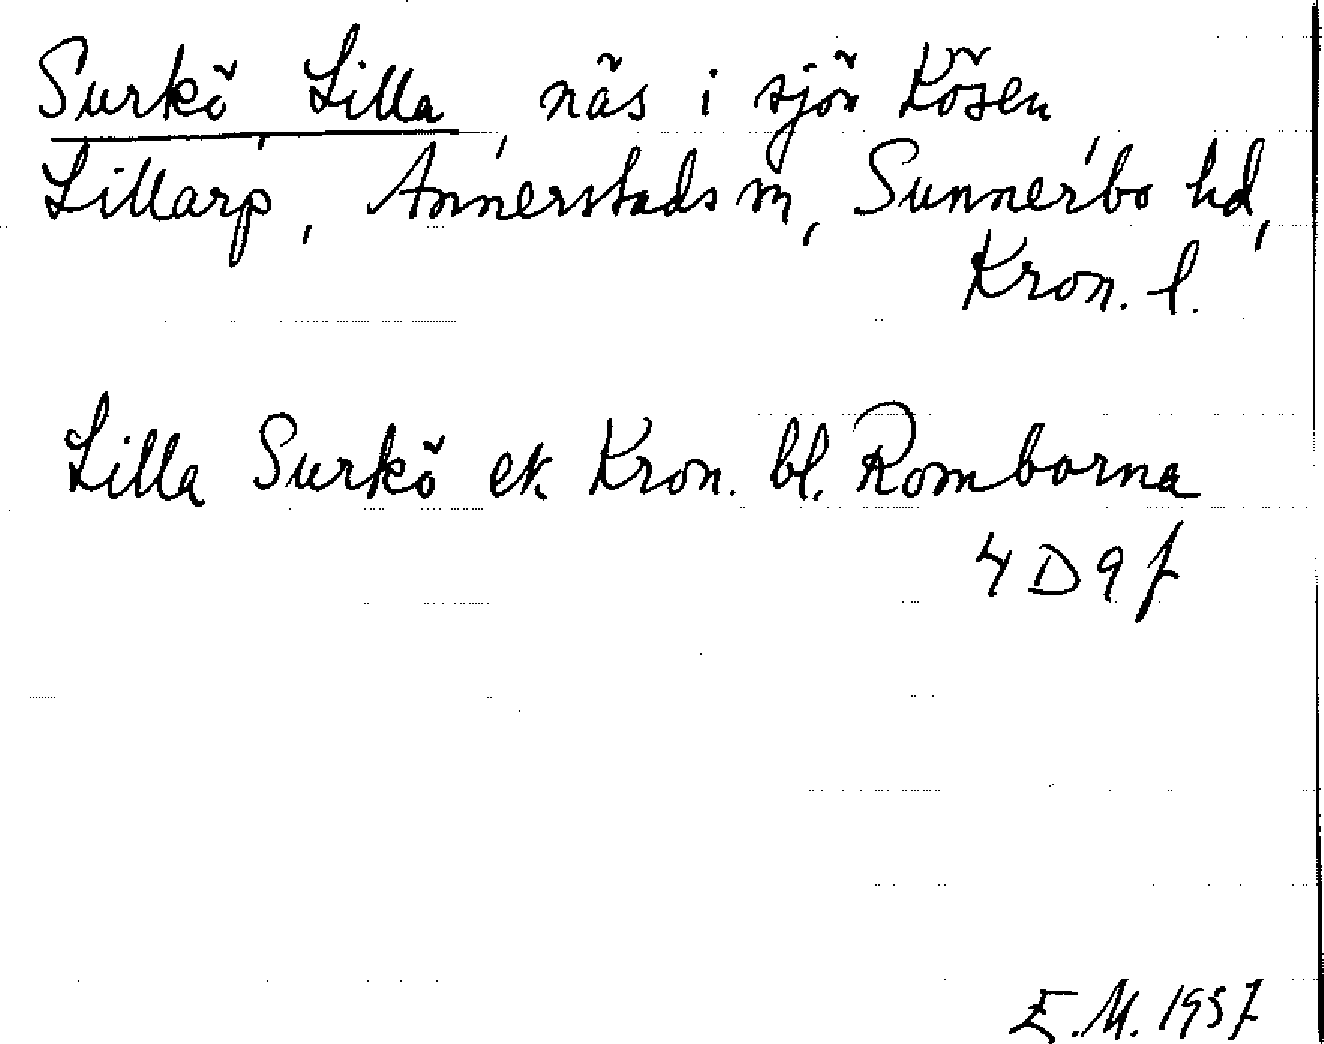 Surkö, Lilla, näs i sjön Kösen,
Lillarp, Annerstads sn, Sunnerbo hd,
Kron. l.
Lilla Surkö ek Kron. bl. Romborna
4 D 9 f
E.M. 1957